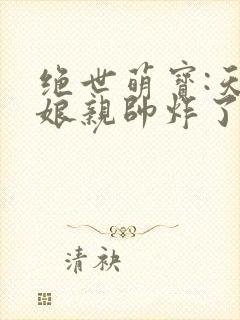 绝世萌寶:天
娘親帥炸了
清袂